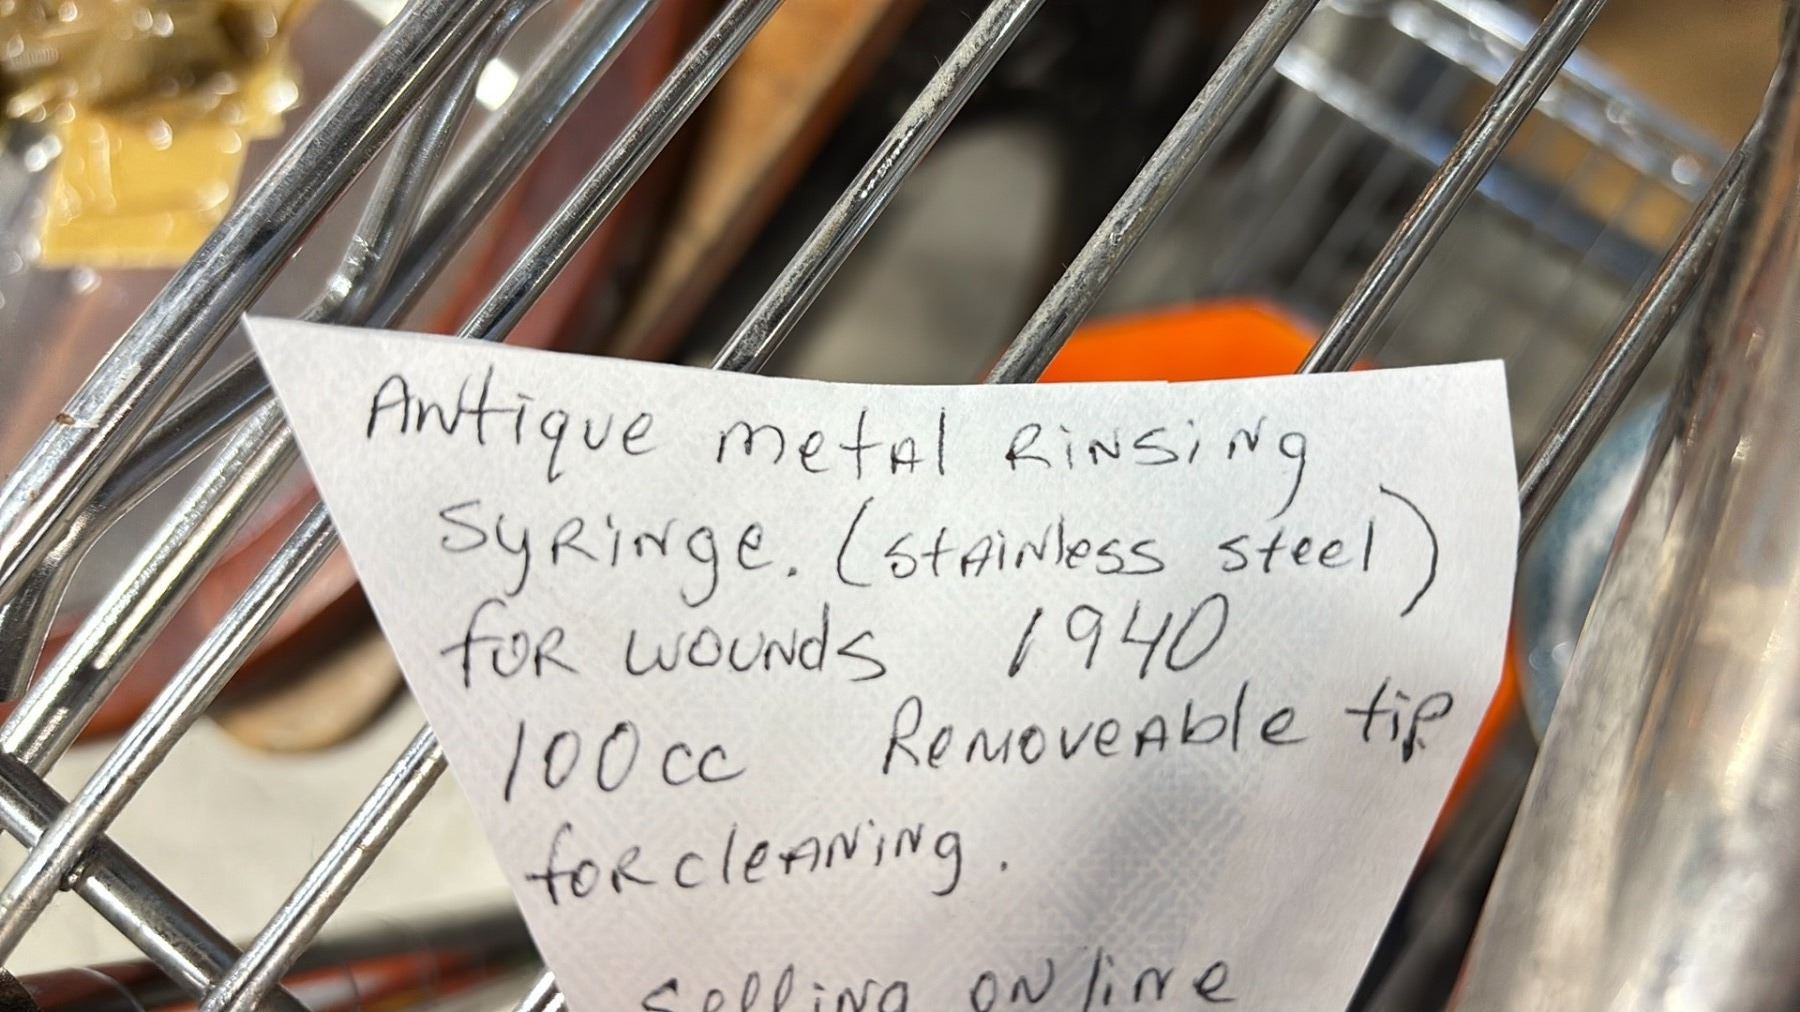 Antique metal Rinsing
Syringe. (stainless steel)
for wounds 1940
100cc Removeable tip
for cleaning.
selling online